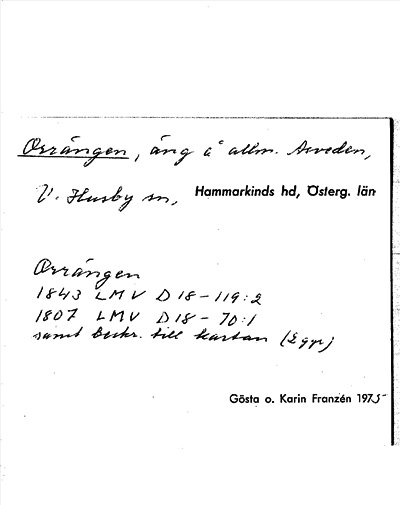 Orrängen, äng å allm. Arveden,
V. Husby sn, Hammarkinds hd, Österg. län
Orrängen
1843 LMV D 18-119:2
1807 LMV D 18-70:1
samt beskr. till kartan (2 ggr)
Gösta o. Karin Franzén 1975